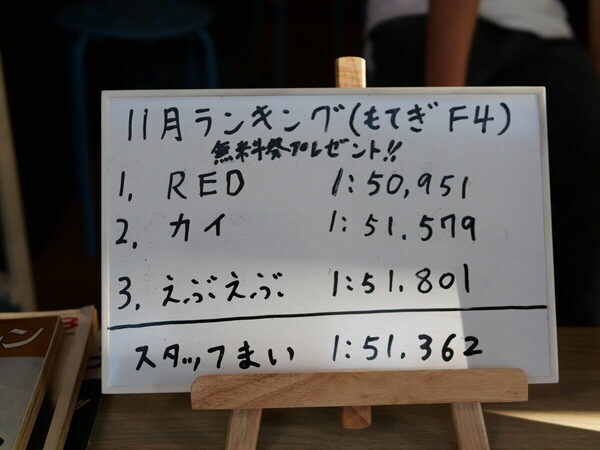 11月ランキング(もてぎF4)
無料券プレゼント!!
1. RED 1:50,951
2. カイ 1:51.579
3. えぶえぶ 1:51.801
スタッフまい 1:51.362